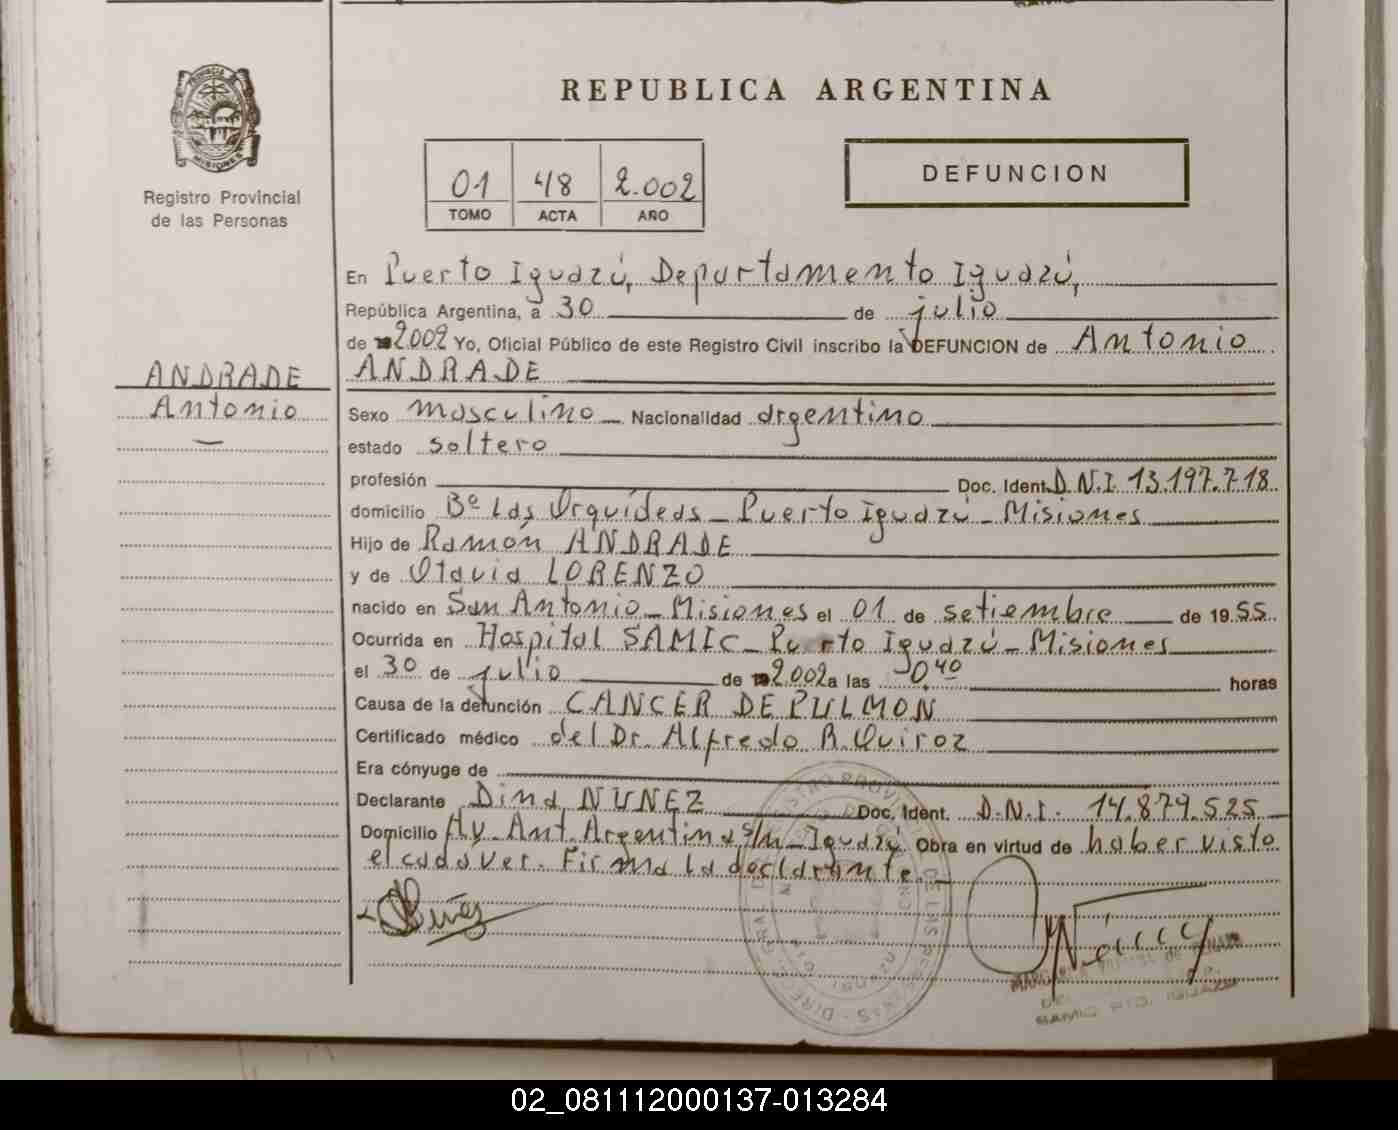 REPUBLICA ARGENTINA
PROVINCIA DE
MISIONES
Registro Provincial
de las Personas
01 48 2.002
TOMO ACTA AÑO
DEFUNCION
En Puerto Iguazú, Departamento Iguazú,
República Argentina, a 30 de julio
de 2002 Yo, Oficial Público de este Registro Civil inscribo la DEFUNCION de Antonio
ANDRADE
ANDRADE
Antonio
Sexo masculino Nacionalidad argentino
estado soltero
profesión Doc. Ident. D.N.I. 13.197.718
domicilio Bº Las Orquídeas - Puerto Iguazú - Misiones
Hijo de Ramón ANDRADE
y de Otavia LORENZO
nacido en San Antonio - Misiones el 01 de setiembre de 1955
Ocurrida en Hospital SAMIC - Puerto Iguazú - Misiones
el 30 de julio de 2.002 a las 0.40 horas
Causa de la defunción CANCER DE PULMON
Certificado médico del Dr. Alfredo R. Quiroz
Era cónyuge de
Declarante Dina NUÑEZ Doc. Ident. D.N.I. 14.879.525
Domicilio Av. Ant. Argentina s/n - Iguazú Obra en virtud de haber visto
el cadáver. Firma la declarante.
Nuñez
SAMIC PTO. IGUAZU
02_081112000137-013284